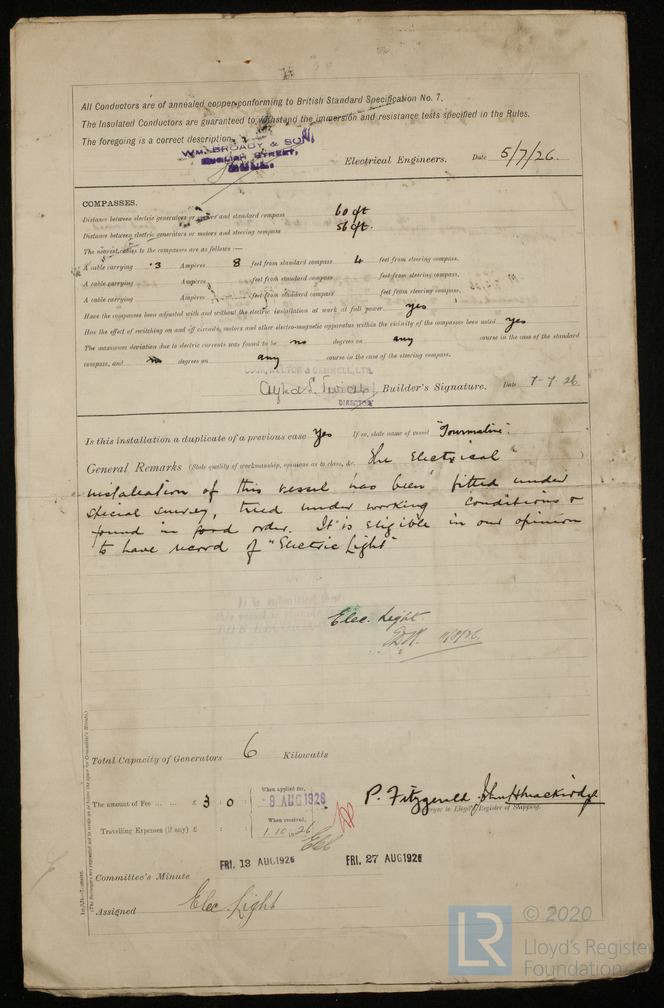 All Conductors are of annealed copper conforming to British Standard Specification No. 7.
The Insulated Conductors are guaranteed to withstand the immersion and resistance tests specified in the Rules.
The foregoing is a correct description.
WM. BROADY & SON,
ENGLISH STREET,
HULL.
Electrical Engineers. Date 5/7/26.
COMPASSES.
Distance between electric generators or motors and standard compass 60 ft
Distance between electric generators or motors and steering compass 56 ft.
The nearest cables to the compasses are as follows:—
A cable carrying .3 Ampères 8 feet from standard compass 4 feet from steering compass.
A cable carrying Ampères feet from standard compass feet from steering compass.
A cable carrying Ampères feet from standard compass feet from steering compass.
Have the compasses been adjusted with and without the electric installation at work at full power yes
Has the effect of switching on and off circuits, motors and other electro-magnetic apparatus within the vicinity of the compasses been noted yes
The maximum deviation due to electric currents was found to be no degrees on any course in the case of the standard
compass, and no degrees on any course in the case of the steering compass.
COOK, WELTON & GEMMELL, LTD.
Builder's Signature. Date 7-7-26
DIRECTOR
Is this installation a duplicate of a previous case Yes If so, state name of vessel "Tourmaline".
General Remarks (State quality of workmanship, opinions as to class, &c. The Electrical
installation of this vessel has been fitted under
special survey, tried under working conditions &
found in good order. It is eligible in our opinion
to have record of "Electric Light"
It is submitted that
this vessel is
THE RECORD
Elec. Light.
Total Capacity of Generators 6 Kilowatts
The amount of Fee ... £ 3 : 0 : When applied for, 9 AUG 1926
P. Fitzgerald
Surveyor to Lloyd's Register of Shipping.
Travelling Expenses (if any) £ : : When received, 1.10.26
FRI. 13 AUG 1926 FRI. 27 AUG 1926
Committee's Minute
Assigned Elec Light
LR © 2020
Lloyd's Register
Foundation